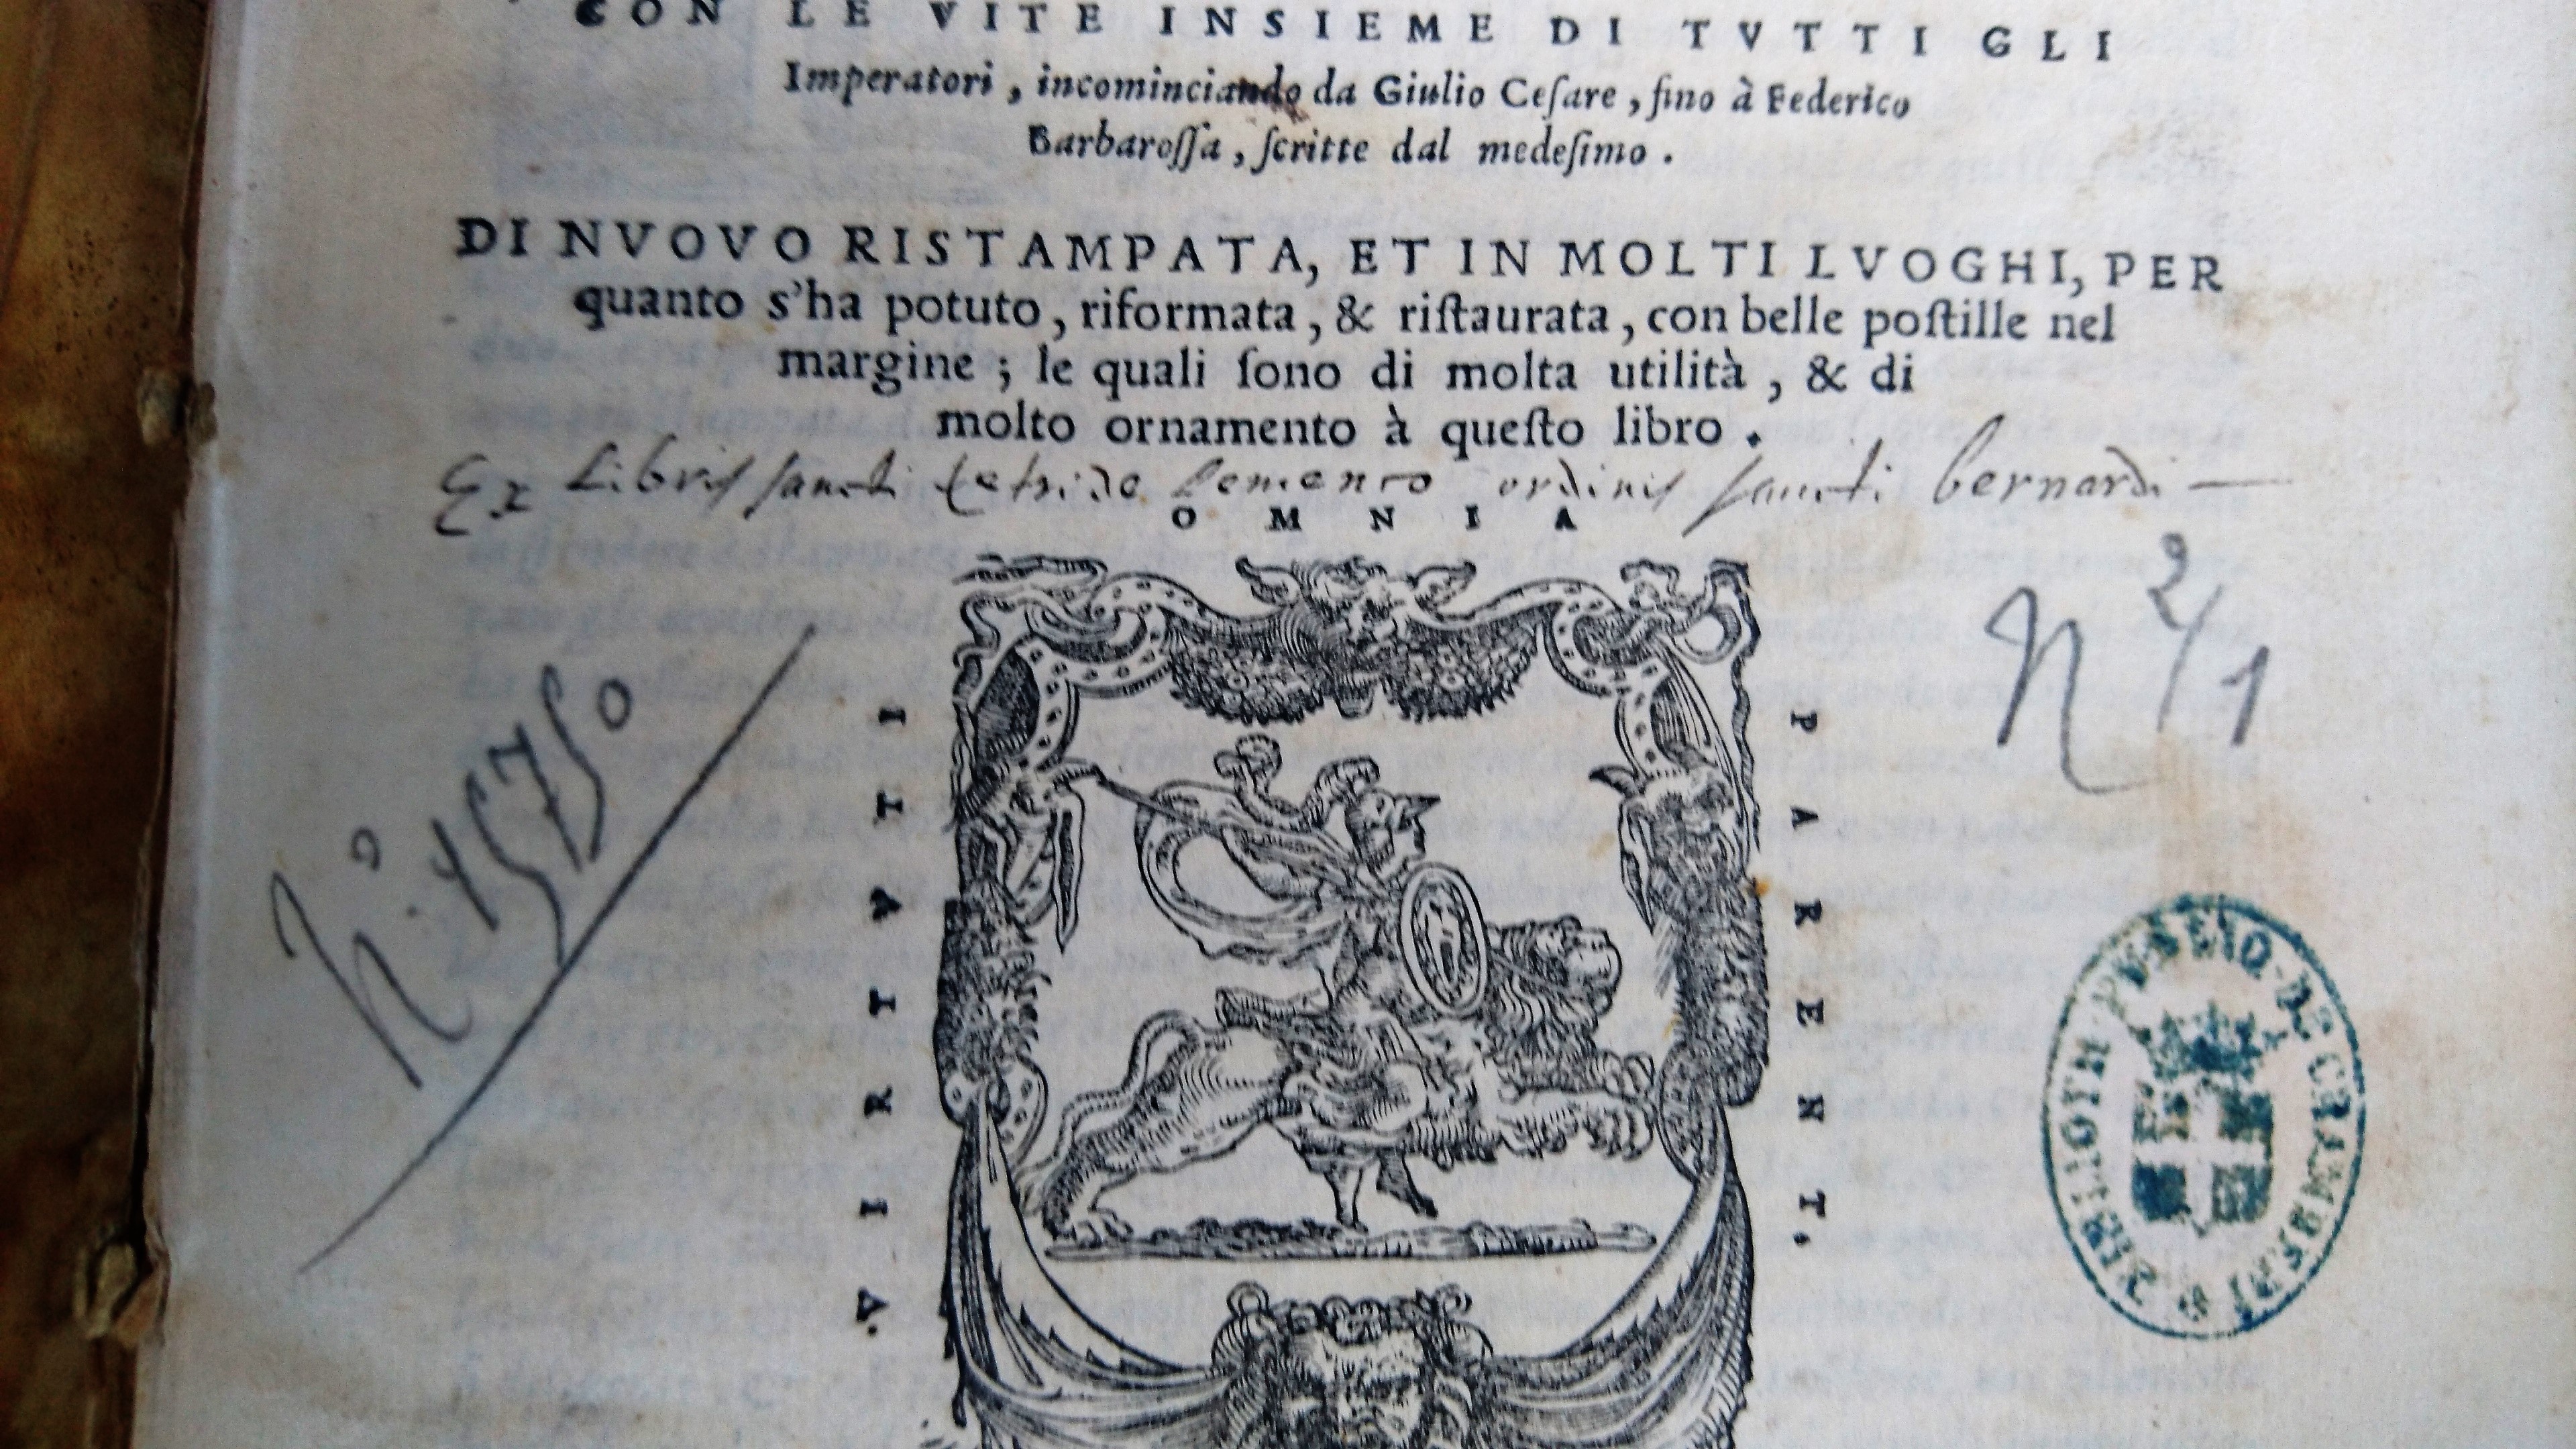 CON LE VITE INSIEME DI TVTTI GLI
Imperatori, incominciando da Giulio Ceſare, fino à Federico
Barbaroſſa, ſcritte dal medeſimo.
DI NVOVO RISTAMPATA, ET IN MOLTI LVOGHI, PER
quanto s'ha potuto, riformata, & riſtaurata, con belle poſtille nel
margine; le quali ſono di molta utilità, & di
molto ornamento à queſto libro.
Ex Libris sancti ordinis sancti bernardi —
OMNIA
VIRTVTI
PARENT.
N 2/1